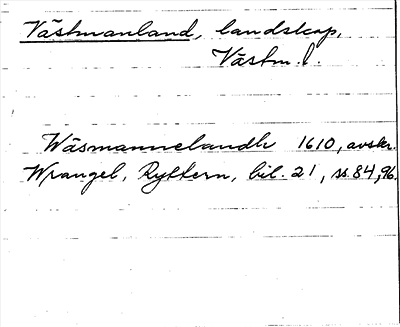 Västmanland, landskap,
Västm. l.
Wäsmannelandh 1610, avskr.
Wrangel, Ryttern, bil. 21, ss. 84, 96.